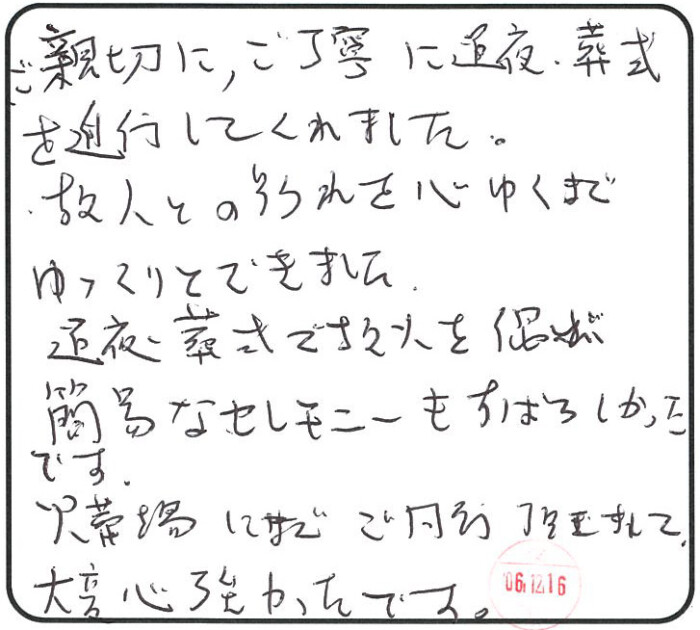 ご親切に,ご丁寧に通夜・葬式
を進行してくれました。
故人との別れを心ゆくまで
ゆっくりとできました.
通夜・葬式で故人を偲ぶ
簡易なセレモニーもすばらしかった
です.
火葬場にまでご同行頂きまして、
大変心強かったです。
'06.12.16